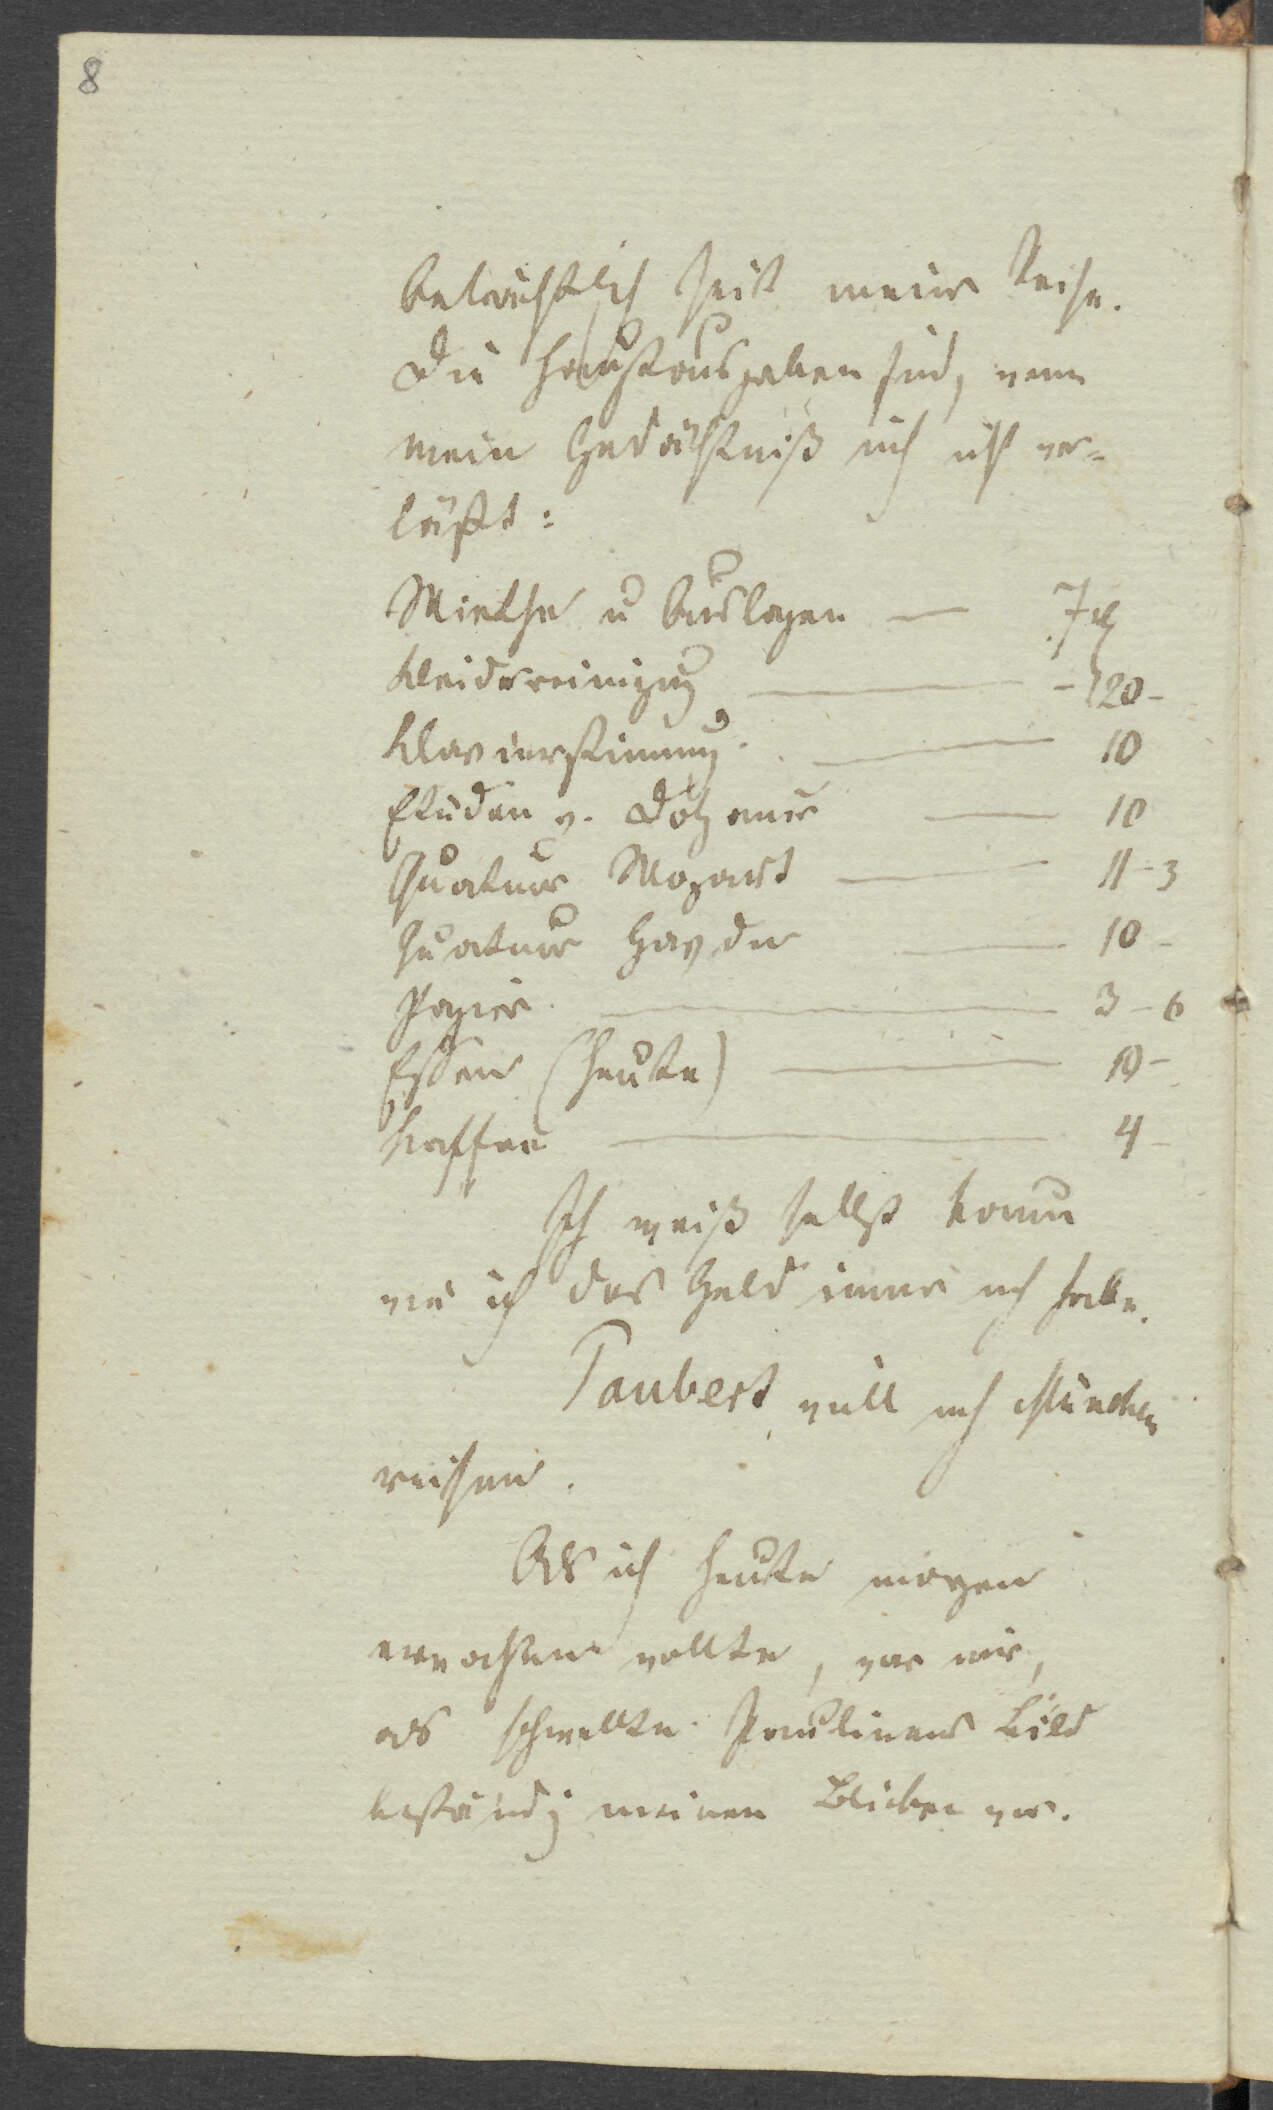 8
beträchtlich seit meiner Reise.
Die Hauptausgaben sind, wenn
mein Gedächtniß mich nicht ver=
läßt:
Miethe u Auslagen — 7 rh
Kleiderreinigung — - 20 -
Klavierstimmung. — 10
Etuden v. Dotzauer — 10
Quatuor Mozart — 11 - 3
Quatuor Haydn — 10 -
Papier. — 3 - 6
Essen (heute) — 10 -
Kaffee — 4 -
Ich weiß selbst kaum
wie ich das Geld immer noch habe.
Taubert will nach München
reisen.
Als ich heute morgen
erwachen wollte, war mir,
als schwebte Paulinens Bild
beständig meinen Blicken vor.